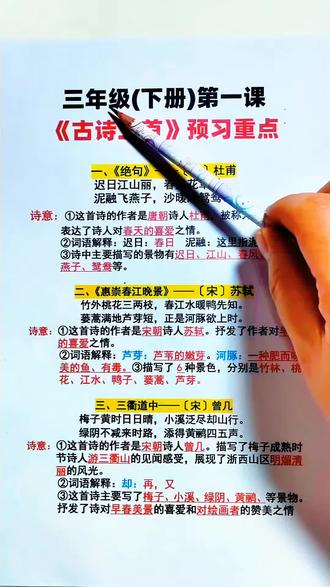 三年级(下册)第一课
《古诗三首》预习重点
一、《绝句》 杜甫
迟日江山丽，春
泥融飞燕子，沙暖
诗意：①这首诗的作者是唐朝诗人杜
表达了诗人对春天的喜爱之情。
②词语解释：迟日：春日 泥融：这里指
③诗中主要描写的景物有迟日、江山、春风、
燕子、鸳鸯等。
二、《惠崇春江晚景》〔宋〕苏轼
竹外桃花三两枝，春江水暖鸭先知。
蒌蒿满地芦芽短，正是河豚欲上时。
诗意：①这首诗的作者是宋朝诗人苏轼。抒发了作者对
的喜爱之情。
②词语解释：芦芽：芦苇的嫩芽。河豚：一种肥而
美的鱼，有毒。③描写了6种景色，分别是竹林、桃
花、江水、鸭子、蒌蒿、芦芽。
三、三衢道中——〔宋〕曾几
梅子黄时日日晴，小溪泛尽却山行。
绿阴不减来时路，添得黄鹂四五声。
诗意：①这首诗的作者是宋朝诗人曾几。描写了梅子成熟时
节诗人游三衢山的见闻感受，展现了浙西山区明媚清
丽的风光。
②词语解释：却：再，又
③这首诗主要写了梅子、小溪、绿阴、黄鹂、等景物。
抒发了诗对早春美景的喜爱和对绘画者的赞美之情